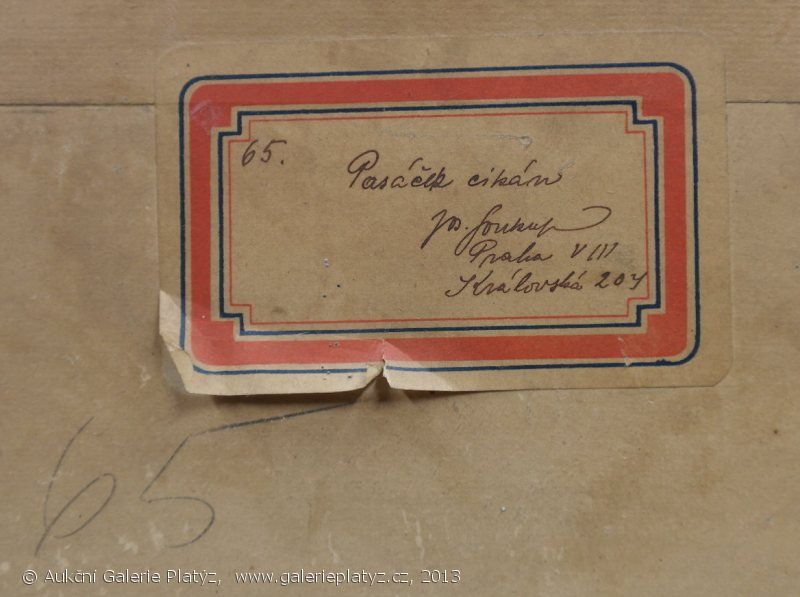 65.
Pasáček cikán
Jos. Soukup
Praha VIII
Královská 204
65
© Aukční Galerie Platýz, www.galerieplatyz.cz, 2013